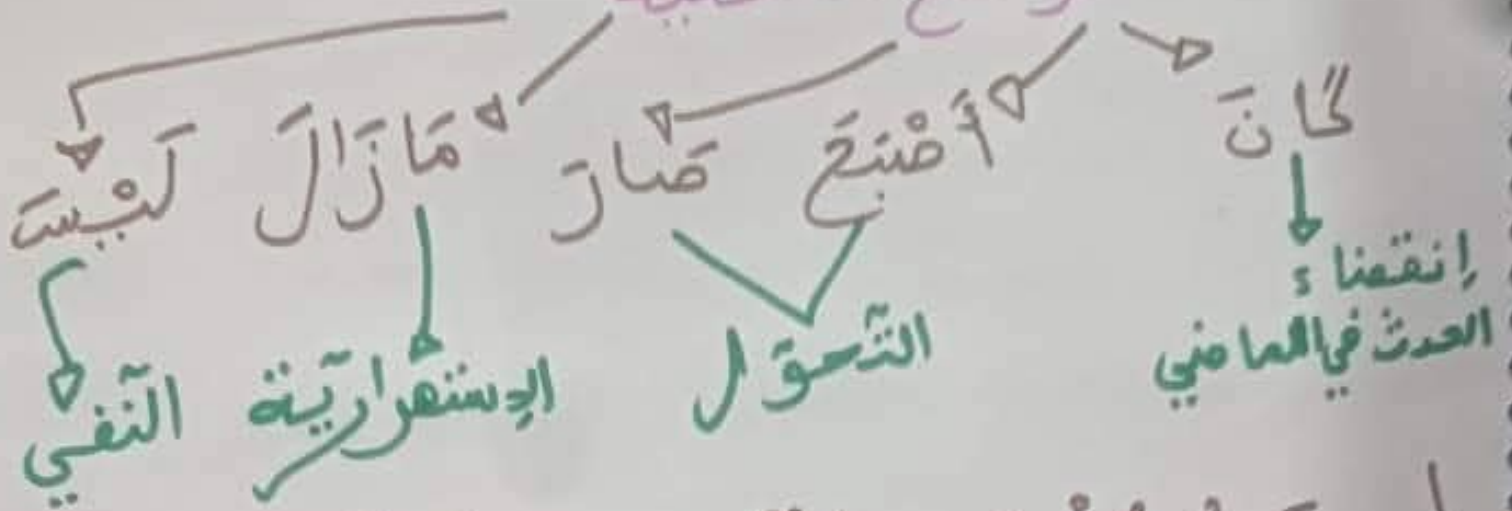 كَانَ أَصْبَحَ صَارَ مَازَالَ لَيْسَ
إنقضاء
الحدث في الماضي
التّحوّل
الإستمراريّة
النّفي